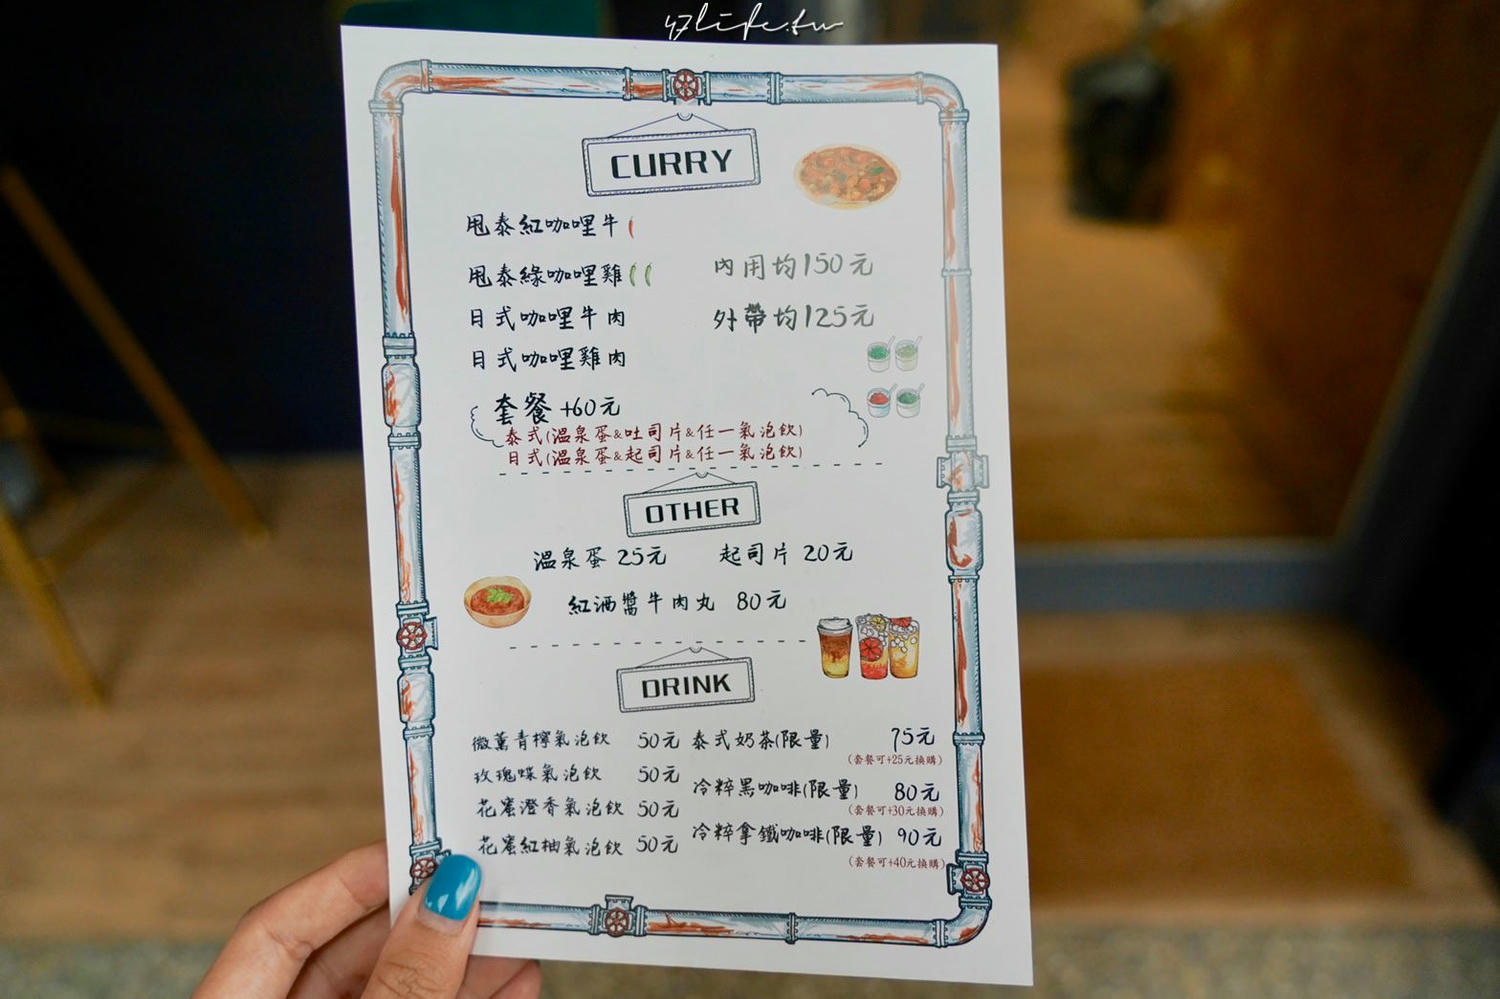 47life.tw
CURRY
甩泰紅咖哩牛
甩泰綠咖哩雞
內用均150元
日式咖哩牛肉
外帶均125元
日式咖哩雞肉
套餐 +60元
泰式(溫泉蛋&吐司片&任一氣泡飲)
日式(溫泉蛋&起司片&任一氣泡飲)
OTHER
溫泉蛋 25元 起司片 20元
紅酒醬牛肉丸 80元
DRINK
微薰青檸氣泡飲 50元
玫瑰蝶氣泡飲 50元
花蜜澄香氣泡飲 50元
花蜜紅柚氣泡飲 50元
泰式奶茶(限量) 75元
(套餐可+25元換購)
冷粹黑咖啡(限量) 80元
(套餐可+30元換購)
冷粹拿鐵咖啡(限量) 90元
(套餐可+40元換購)